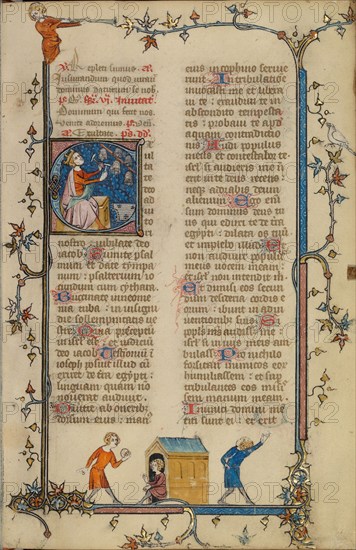 repleti sumus.
Iusiurandum quod iurau
dominus se nob
Inuitat.
Dominum qui fecit nos
Venite adoremus.
Exultate. ps. dd.
nostro iubilate deo
iacob. Sumite psal
mum et date tympa
num : psalterium io
cundum cum cythara.
Bucinate in neome
nia tuba : in insigni
die sollempnitatis ue
stre. Quia preceptum
israel est : et iudicium
deo iacob. Testimonium i
ioseph posuit illud cu
exiret de terra egypti :
linguam quam no
nouerat audiuit.
Diuertit ab oneribus
dorsum eius : man
eius in cophino seruie
runt. In tribulatione
inuocasti me et libera
ui te : exaudiui te in
abscondito tempesta
tis : probaui te apud
aquam contradictio
nis. Audi populus
meus et contestabor te
israel si audieris me : n
erit in te deus recens :
neque adorabis deum
alienum. Ego enim
sum dominus deus tu
us qui eduxi te de terra
egypti : dilata os tuu
et implebo illud. Et
non audiuit populus
meus uocem meam :
et israel non intendit m
Et dimisi eos secun
dum desideria cordis e
orum : ibunt in ad
inuentionibus suis. Si
populus meus audisset me isra
el si in uiis meis am
bulasset. Pro nichilo
forsitan inimicos eor
humiliassem : et sup
tribulantes eos mis
sem manum meam.
Inimici domini me
titi sunt ei : et erit